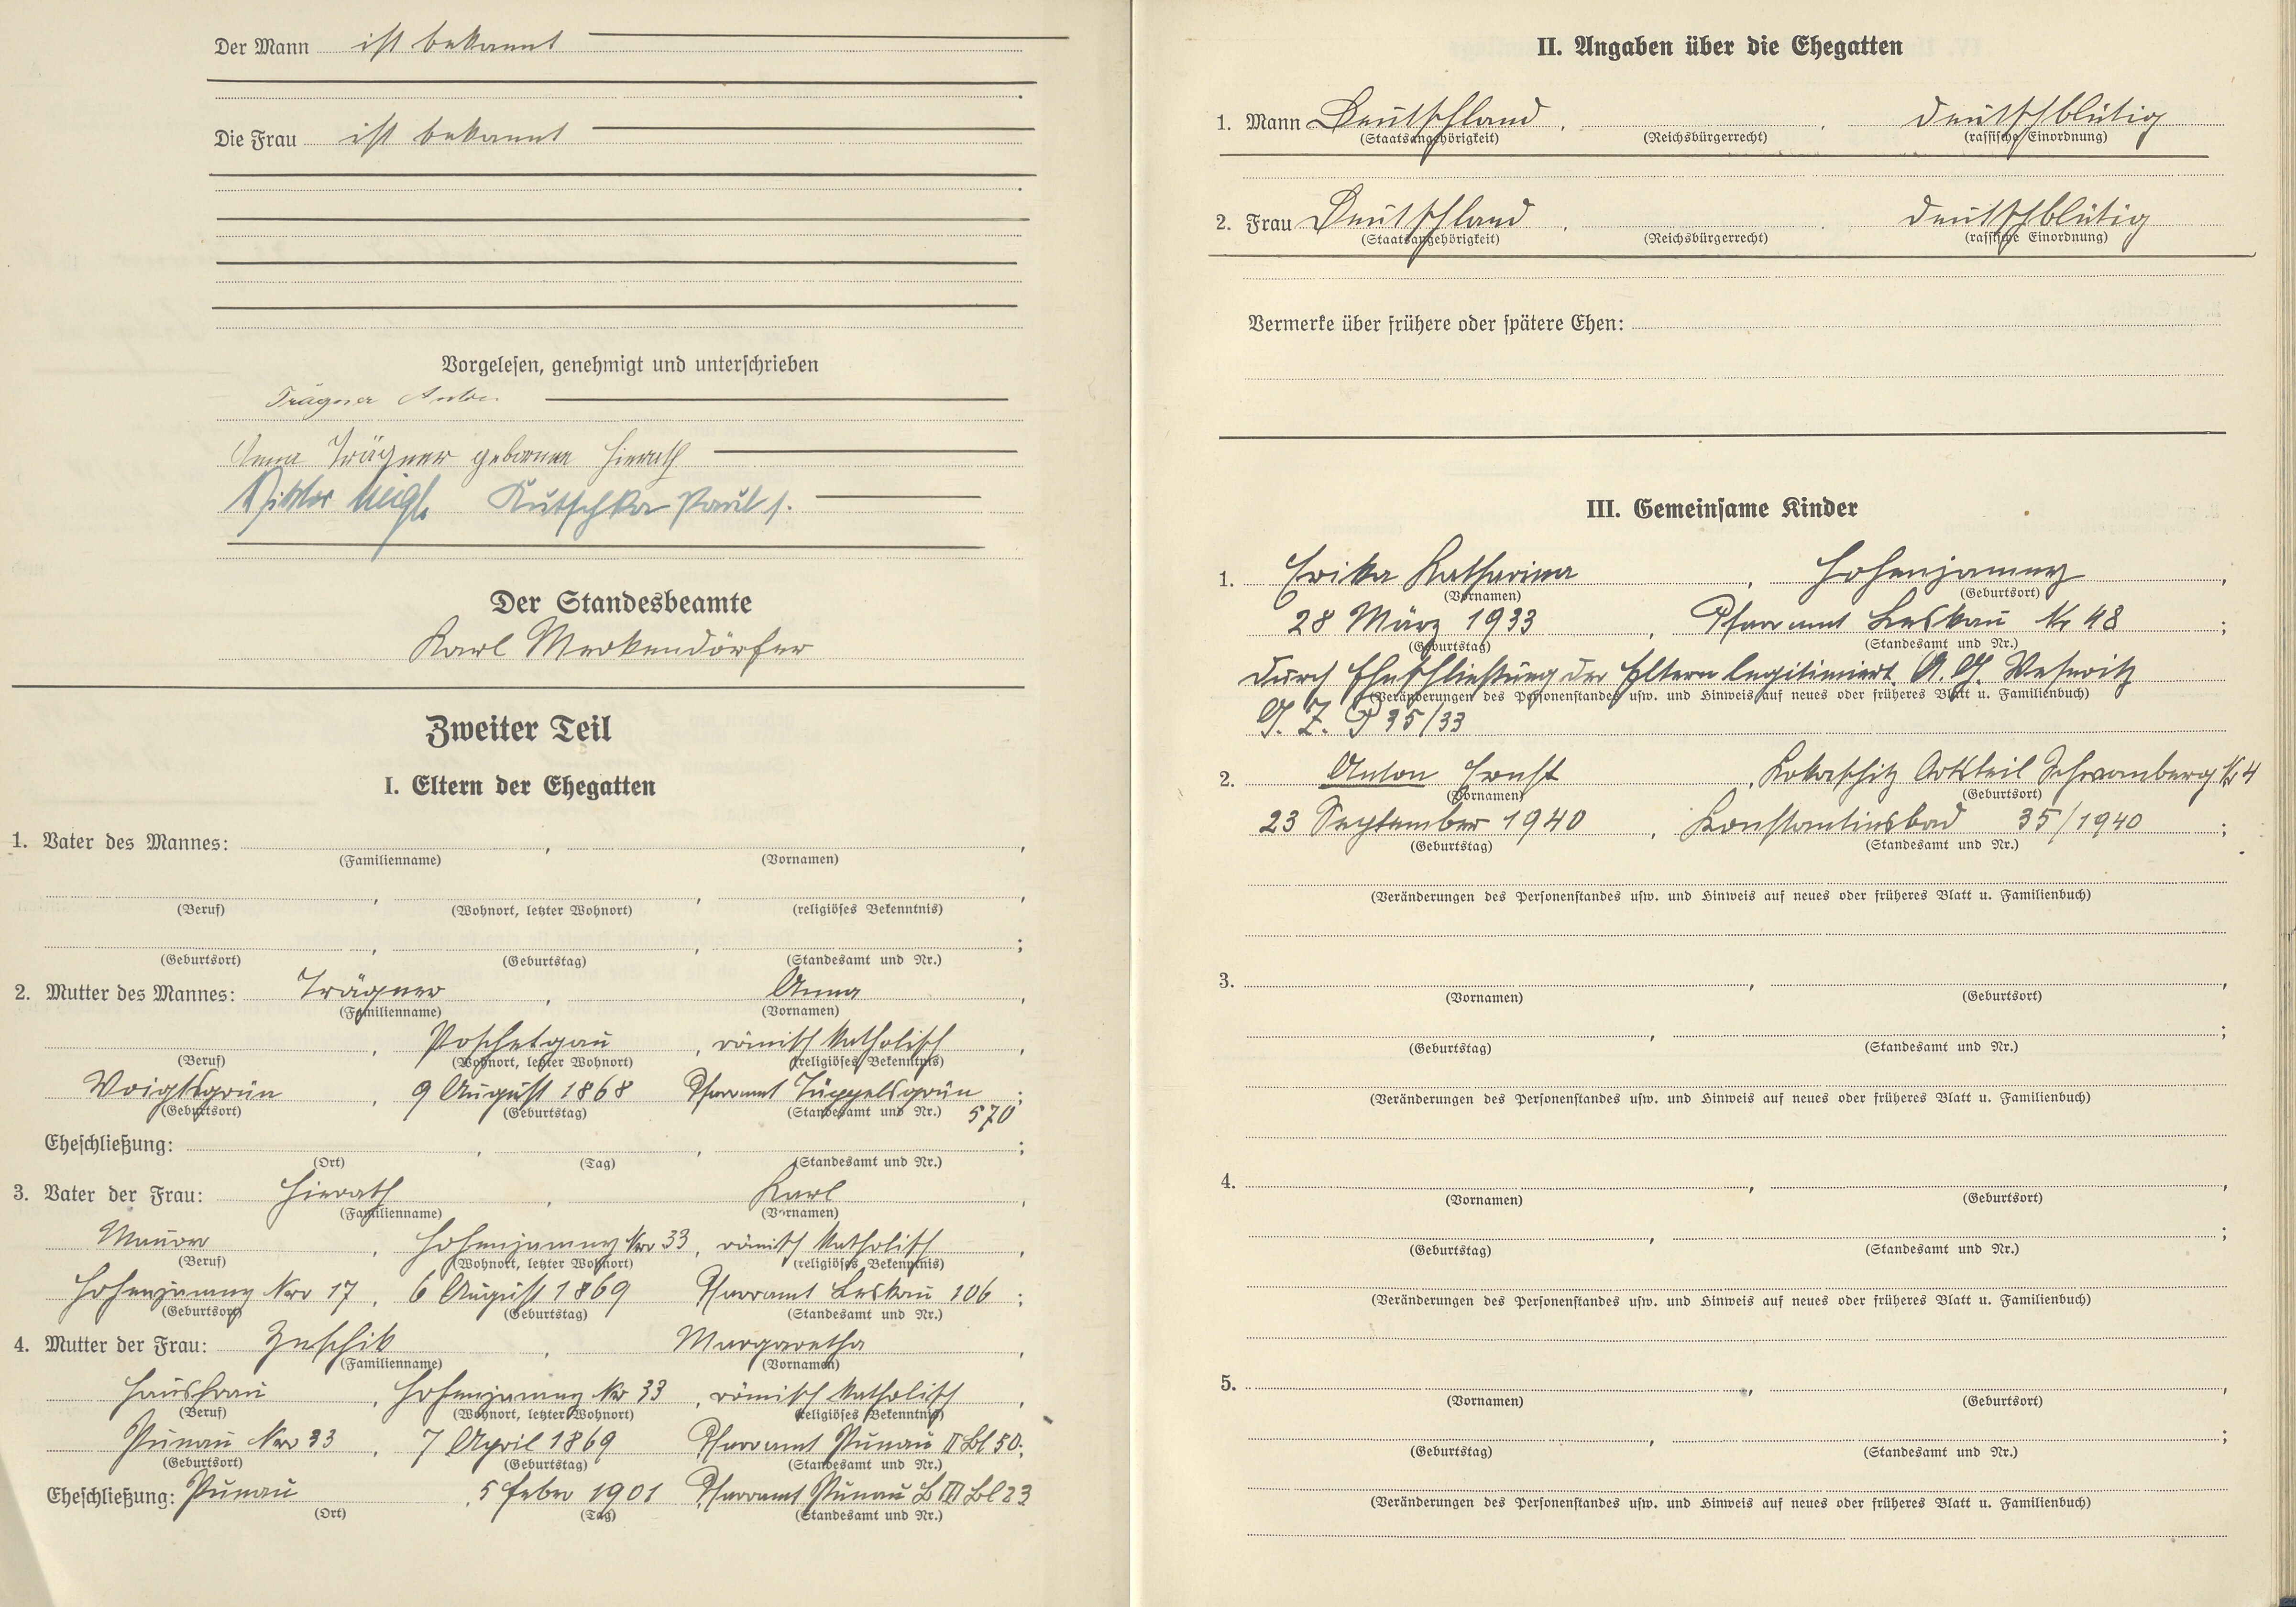 Der Mann ist bekannt
Die Frau ist bekannt
Vorgelesen, genehmigt und unterschrieben
Trägner Anton
Anna Trägner geborene Hierath
Viktor Weigl. Kutschka Paul s.
Der Standesbeamte
Karl Merkendörfer
Zweiter Teil
I. Eltern der Ehegatten
1. Vater des Mannes: , ,
(Familienname) (Vornamen)
(Beruf) (Wohnort, letzter Wohnort) (religiöses Bekenntnis)
(Geburtsort) (Geburtstag) (Standesamt und Nr.)
2. Mutter des Mannes: Trägner , Anna ,
(Familienname) (Vornamen)
, Poschetzau , römisch katholisch ,
(Beruf) (Wohnort, letzter Wohnort) (religiöses Bekenntnis)
Voigtsgrün , 9 August 1868 Pfarramt Tüppelsgrün ;
(Geburtsort) (Geburtstag) (Standesamt und Nr.) 570
Eheschließung: , , ;
(Ort) (Tag) (Standesamt und Nr.)
3. Vater der Frau: Hierath , Karl ,
(Familienname) (Vornamen)
Maurer , Hohenjamny Nro 33 , römisch katholisch ,
(Beruf) (Wohnort, letzter Wohnort) (religiöses Bekenntnis)
Hohenjamny Nro 17 , 6 August 1869 Pfarramt Leskau 106 ;
(Geburtsort) (Geburtstag) (Standesamt und Nr.)
4. Mutter der Frau: Zeschik , Margaretha ,
(Familienname) (Vornamen)
Hausfrau , Hohenjamny Nr 33 , römisch katholisch ,
(Beruf) (Wohnort, letzter Wohnort) (religiöses Bekenntnis)
Punnau Nro 33 , 7 April 1869 Pfarramt Punnau II Bl 50;
(Geburtsort) (Geburtstag) (Standesamt und Nr.)
Eheschließung: Punnau , 5 Feber 1901 Pfarramt Punnau B III Bl 23
(Ort) (Tag) (Standesamt und Nr.)
II. Angaben über die Ehegatten
1. Mann Deutschland , , deutschblütig
(Staatsangehörigkeit) (Reichsbürgerrecht) (rassische Einordnung)
2. Frau Deutschland , , deutschblütig
(Staatsangehörigkeit) (Reichsbürgerrecht) (rassische Einordnung)
Vermerke über frühere oder spätere Ehen:
III. Gemeinsame Kinder
1. Erika Katharina , Hohenjamny ,
(Vornamen) (Geburtsort)
28 März 1933 , Pfarramt Leskau Nr 48 ;
(Geburtstag) (Standesamt und Nr.)
durch Eheschließung der Eltern legitimiert. A. G. Weseritz
(Veränderungen des Personenstandes usw. und Hinweis auf neues oder früheres Blatt u. Familienbuch)
G. Z. P 35/33
2. Anton Ernst , Lokaschitz Ortsteil Schwamberg Nr 4
(Vornamen) (Geburtsort)
23 September 1940 , Konstantinsbad 35/1940 ;
(Geburtstag) (Standesamt und Nr.)
(Veränderungen des Personenstandes usw. und Hinweis auf neues oder früheres Blatt u. Familienbuch)
3. , ,
(Vornamen) (Geburtsort)
(Geburtstag) (Standesamt und Nr.)
(Veränderungen des Personenstandes usw. und Hinweis auf neues oder früheres Blatt u. Familienbuch)
4. , ,
(Vornamen) (Geburtsort)
(Geburtstag) (Standesamt und Nr.)
(Veränderungen des Personenstandes usw. und Hinweis auf neues oder früheres Blatt u. Familienbuch)
5. , ,
(Vornamen) (Geburtsort)
(Geburtstag) (Standesamt und Nr.)
(Veränderungen des Personenstandes usw. und Hinweis auf neues oder früheres Blatt u. Familienbuch)